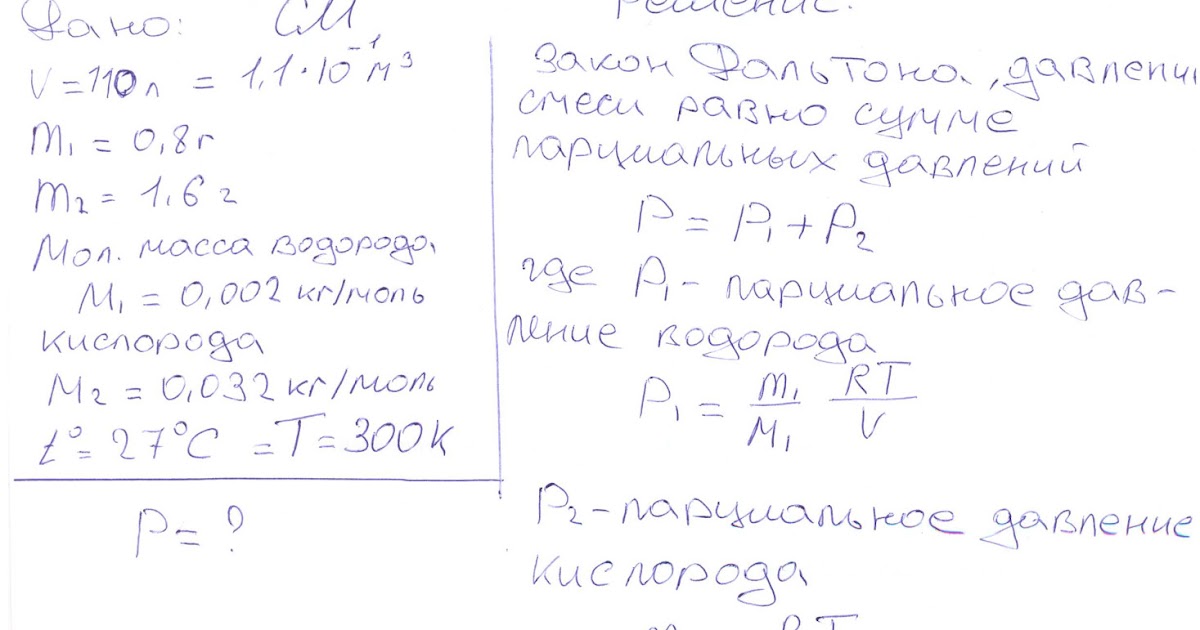 Дано: СИ
V = 110 л = 1,1·10⁻¹ м³
m₁ = 0,8 г
m₂ = 1,6 г
Мол. масса водорода
M₁ = 0,002 кг/моль
кислорода
M₂ = 0,032 кг/моль
t° = 27°C = T = 300 К
P = ?
Решение:
Закон Дальтона, давлени
смеси равно сумме
парциальных давлений
P = P₁ + P₂
где P₁ – парциальное дав-
ление водорода
P₁ = m₁/M₁ RT/V
P₂ – парциальное давление
кислорода
RT